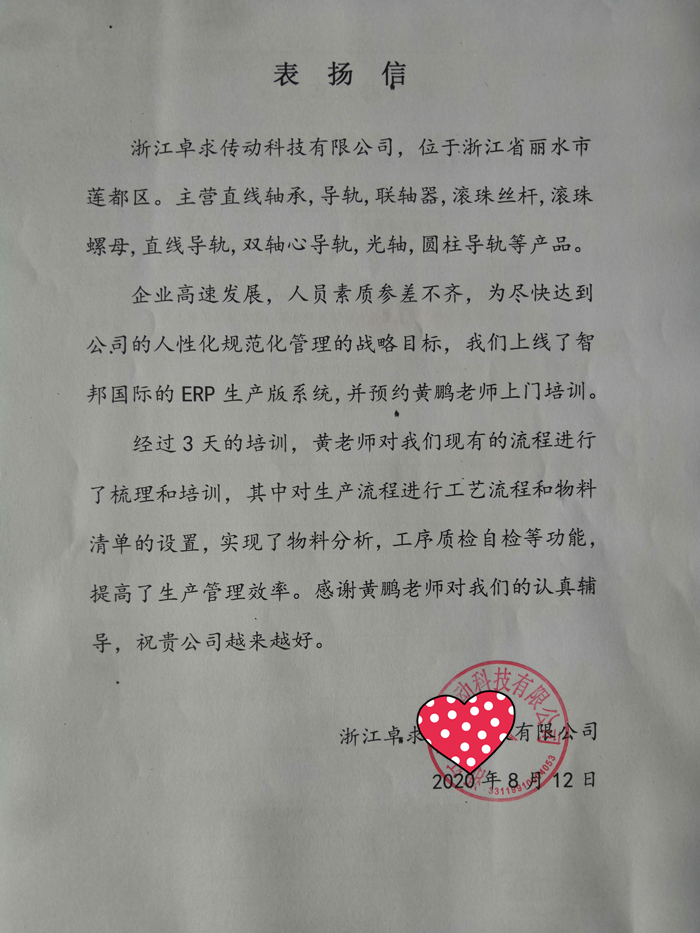 表 扬 信
浙江卓求传动科技有限公司，位于浙江省丽水市
莲都区。主营直线轴承,导轨,联轴器,滚珠丝杆,滚珠
螺母,直线导轨,双轴心导轨,光轴,圆柱导轨等产品。
企业高速发展，人员素质参差不齐，为尽快达到
公司的人性化规范化管理的战略目标，我们上线了智
邦国际的 ERP 生产版系统,并预约黄鹏老师上门培训。
经过 3 天的培训，黄老师对我们现有的流程进行
了梳理和培训，其中对生产流程进行工艺流程和物料
清单的设置,实现了物料分析,工序质检自检等功能，
提高了生产管理效率。感谢黄鹏老师对我们的认真辅
导，祝贵公司越来越好。
动科技有限公司
浙江卓求 技有限公司
2020 年 8 月 12 日